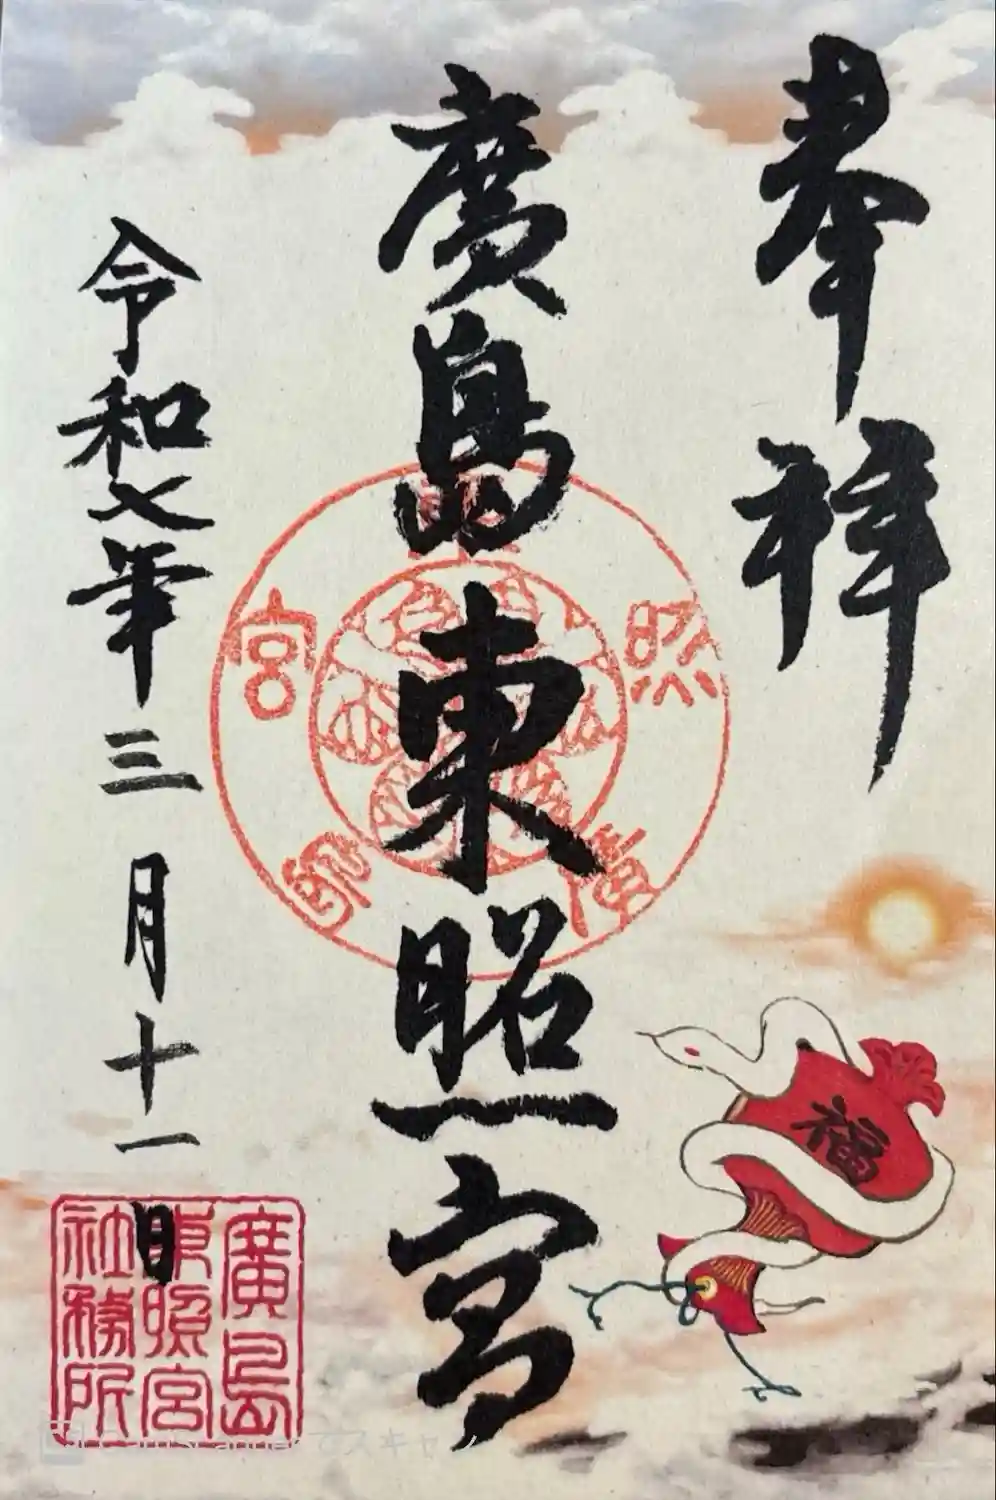 奉拝
廣島東照宮
令和七年三月十一日
照
宮
廣
島
福
廣島
東照宮
社務所